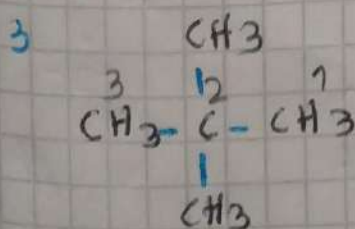 3 CH3
3 2 1
CH3 - C - CH3
CH3